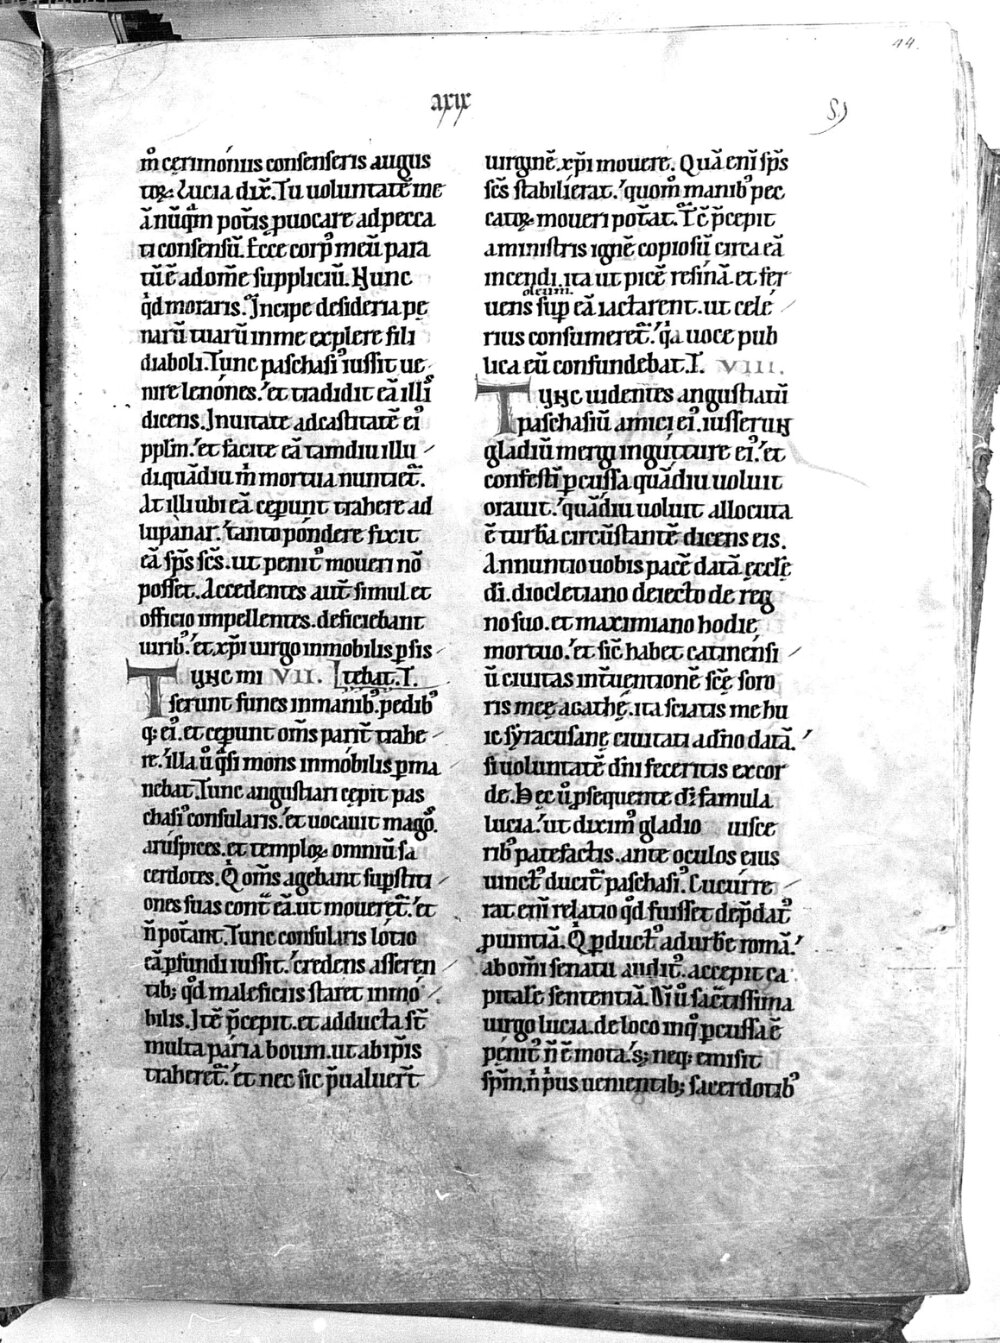 44.
axix
S)
m̄ cerimoniis consenseris augus
toꝝ. Lucia dix̄. Tu voluntatē me
ā nūq̄m potis ꝓuocare ad pecca
ti consensū. Ecce corpꝰ meū para
tū ē ad om̄e suppliciū. Hunc
qd̄ moraris. Incipe desideria pe
narū tuarū in me explere fili
diaboli. Tunc paschasiꝰ iussit ue
nire lenones. et tradidit eā illis
dicens. Inuitate ad castitatē eiꝰ
pplm̄. et facite eā tamdiu illu
di. quādiu m̄ mortua nuntiet̄.
At illi ubi eā cep̄unt trahere ad
lupanar. tanto pondere fixit
eā sp̄s sc̄s. ut penitꝰ moueri nō
posset. Accedentes aut̄ simul et
officio impellentes. deficiebant
uiribꝰ. et xp̄i uirgo inmobilis ꝑsis
Tunc mi VII. tebat. T.
serunt funes in manibꝰ. pedibꝰ
q; eiꝰ. et cep̄unt om̄s parit̄ trahe
re. illa ū q̄si mons inmobilis ꝑma
nebat. Tunc angustiari cepit pas
chasiꝰ consularis. et uocauit magos.
aruspices. et temploꝝ omniū sa
cerdotes. Qi om̄s agebant sup̄stiti
ones suas cont̄ eā. ut moueret̄. et
n̄ pot̄ant. Tunc consularis lotio
eā ꝑfundi iussit. credens asseren
tib; qd̄ maleficiis staret inmo
bilis. Itē p̄cepit. et adducta st̄
multa paria boum. ut ab ip̄is
traheret̄. et nec sic p̄ualuert̄
uirginē. xp̄i mouere. Quā eni sp̄s
sc̄s stabilierat. quom̄ manibꝰ pec
catoꝝ moueri pot̄at. Tc̄ p̄cepit
a ministris ignē copiosū circa eā
incendi. ita ut picē resinā. et fer
oleum.
uens sup̄ eā iactarent. ut cele
rius consumeret̄. qa uoce pub
lica eū confundebat. T. VIII.
Tunc uidentes angustiatū
paschasiū amici eiꝰ. iusserun
gladiū mergi in gutture eiꝰ. et
confestī ꝑcussa quādiu uoluit
orauit. quādiu uoluit allocuta
ē turbā circūstantē dicens eis.
Annuntio uobis pacē datā eccl̄e
dī. diocletiano deiecto de reg
no suo. et maximiano hodie
mortuo. et sic̄ habet catinensi
ū ciuitas int̄uentionē sc̄e soro
ris mee agathe. ita sciatis me hu
ic syracusane ciuitati a dn̄o datā.
si uoluntatē dn̄i feceritis ex cor
de. Hec ū ꝓsequente dī famula
lucia. ut diximꝰ gladio uisce
ribꝰ patefactis. ante oculos eius
uinctꝰ ducit̄ paschasiꝰ. Cucurre
rat eni relatio qd̄ fuisset dep̄datꝰ
ꝓuintiā. Qi ꝑductꝰ ad urbē romā.
ab om̄i senatu auditꝰ. accepit ca
pitalē sententiā. Ni ū sac̄tissima
uirgo lucia. de loco in q̄ ꝑcussa ē
penitꝰ n̄ ē mota. s; neq; emisit
sp̄m. n̄ pus uenientib; sacerdotibꝰ